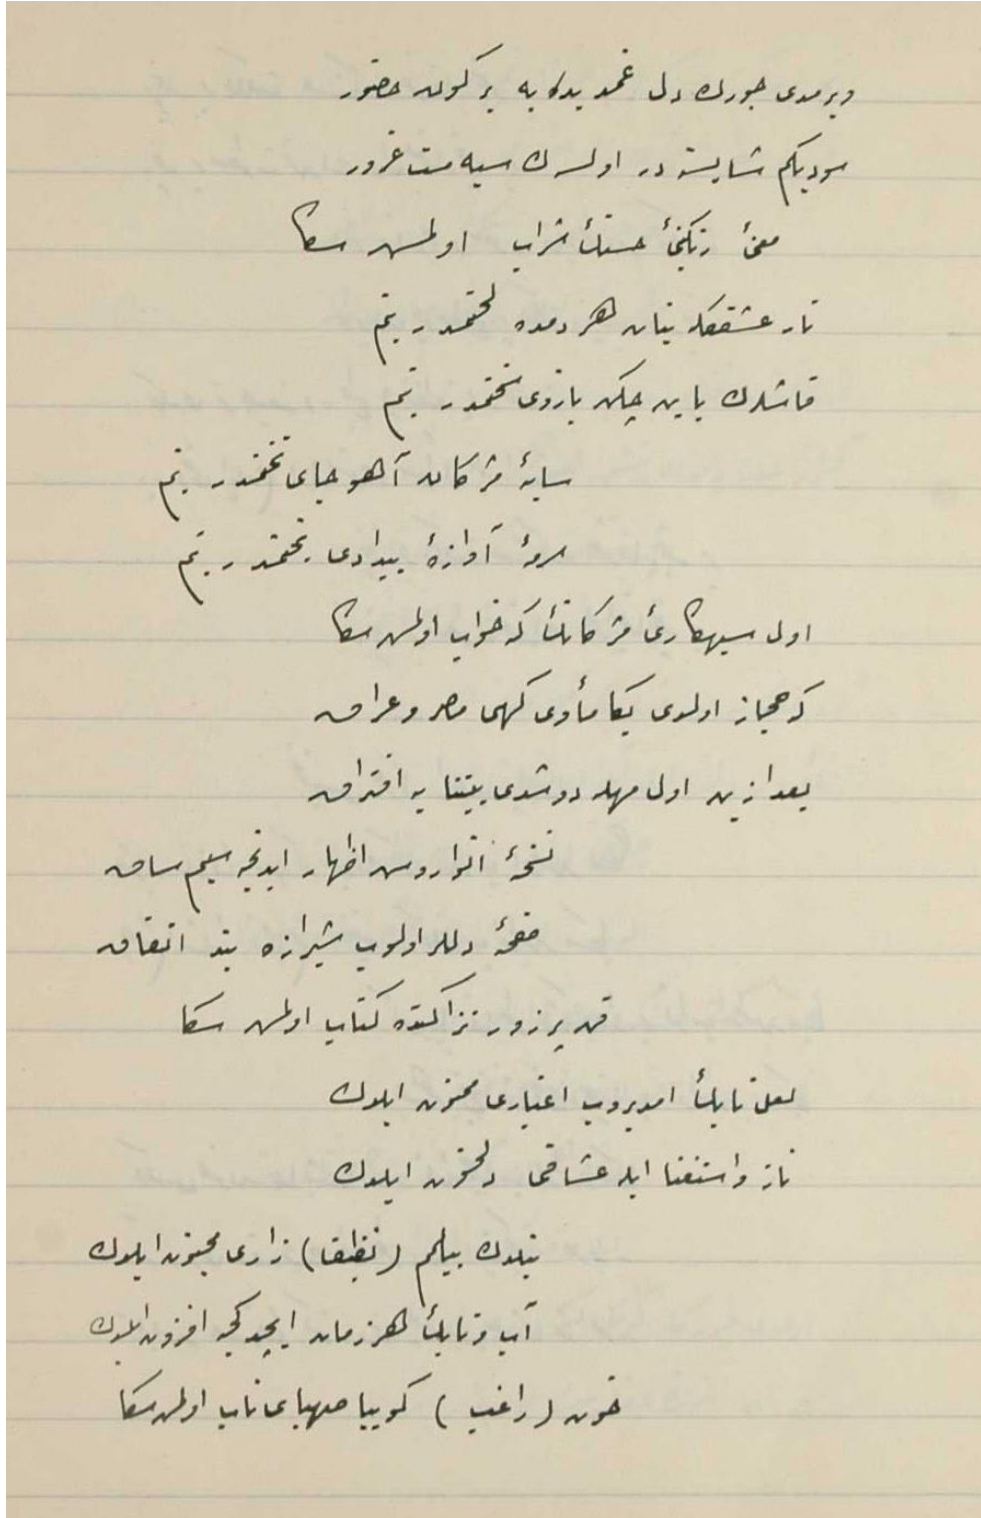 ویرمدی جورك دل غمدیده‌یه بر كون حضور
سودیكم شایسته در اولسه‌ك سیه مست غرور
معنیٔ رنكینیٔ حسنكٔ شراب اولمش سكا
نار عشقكله ینان هر دمده لختمدر بنم
قاشلرك یاین چكن بازوی سختمدر بنم
سایهٔ مژكان آهو جای تختمدر بنم
سرمهٔ آوازهٔ بیدادی بختمدر بنم
اول سیهكاریٔ مژكانكٔ كه خواب اولمش سكا
كه حجاز اولدی بكا مأوی كهی مصر و عراق
بعد ازین اول مهله دوشدی بیننا یه افتراق
نسخهٔ اظهار ایدنجه سیم ساق
صفحهٔ دللر اولوب شیرازه بند اتفاق
قد بر زور نزاكتده كتاب اولمش سكا
لعل نابكٔ امدیروب اغیاری ممنون ایلدك
ناز و استغنا ایله عشاقی دلخون ایلدك
بیلمم (نظیفا) زاری مجنون ایلدك
آب و تابكٔ هر زمان ایچدكجه افزون ایلدك
خون (راغب) كوییا صهبای ناب اولمش سكا